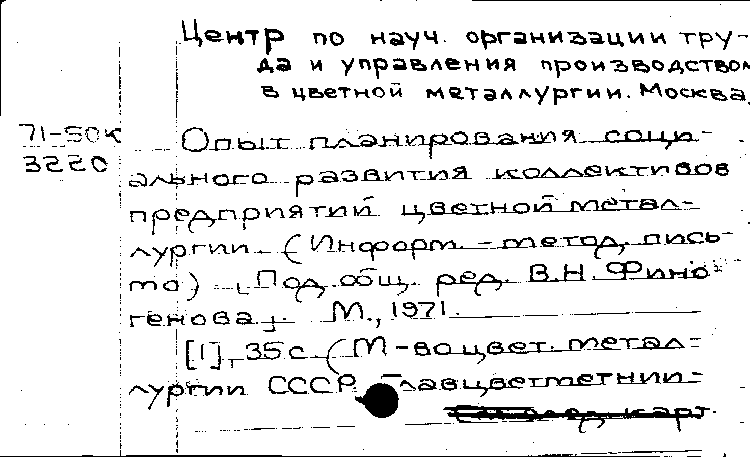 Центр по науч. организации тру-
да и управления производством
в цветной металлургии. Москва.
71-50к
3220
Опыт планирования соци-
ального развития коллективов
предприятий цветной метал-
лургии. (Информ.-метод. пись-
мо) [Под общ. ред. В.Н. Фино-
генова]. М., 1971.
[1], 35 с. (М-во цвет. метал-
лургии СССР. Главцветметнии-